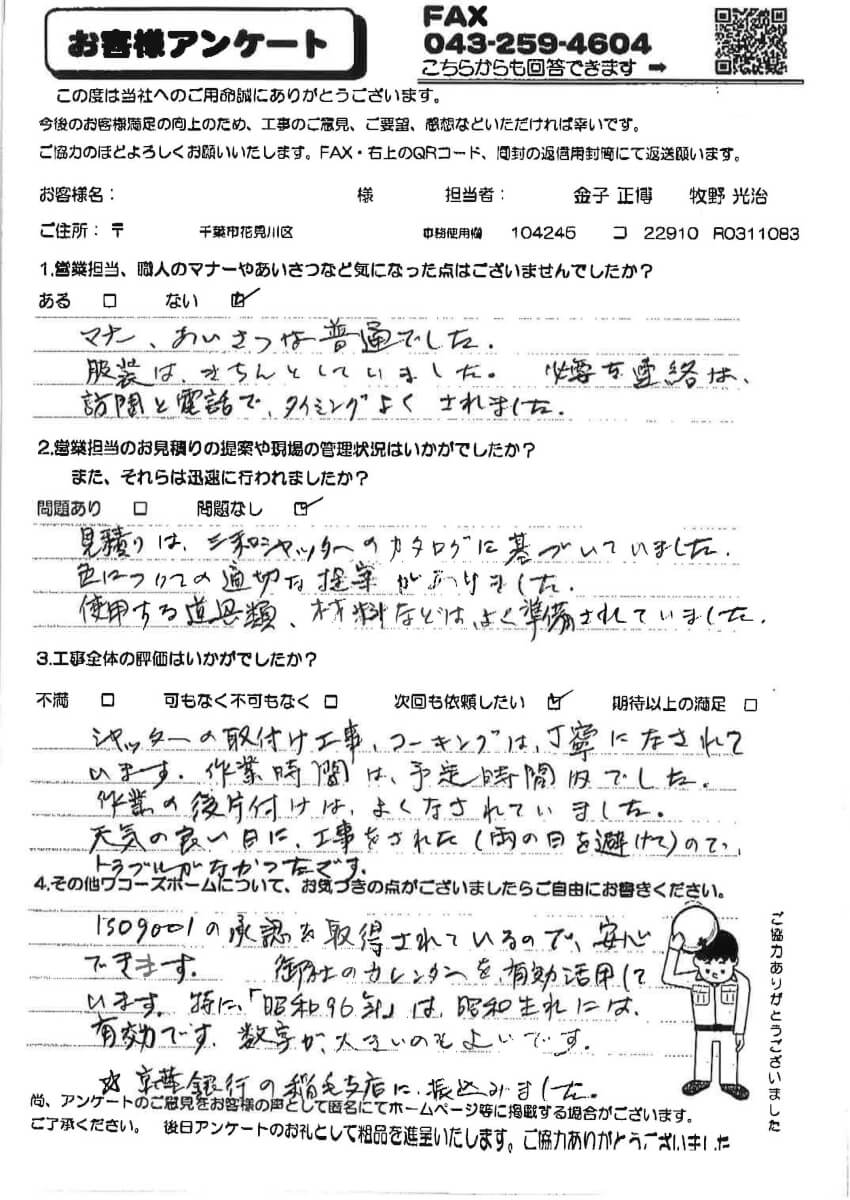 お客様アンケート
FAX
043-259-4604
こちらからも回答できます ➡
この度は当社へのご用命誠にありがとうございます。
今後のお客様満足の向上のため、工事のご意見、ご要望、感想などいただければ幸いです。
ご協力のほどよろしくお願いいたします。FAX・右上のQRコード、同封の返信用封筒にて返送願います。
お客様名： 様 担当者： 金子 正博 牧野 光治
ご住所：〒 千葉市花見川区 事務使用欄 104245 コ 22910 R0311083
1.営業担当、職人のマナーやあいさつなど気になった点はございませんでしたか？
ある □ ない ☑
マナー、あいさつは普通でした。
服装は、きちんとしていました。 必要な連絡は、
訪問と電話で、タイミングよくされました。
2.営業担当のお見積りの提案や現場の管理状況はいかがでしたか？
また、それらは迅速に行われましたか？
問題あり □ 問題なし ☑
見積りは、三和シャッターのカタログに基づいていました。
色についての適切な提案がありました。
使用する道具類、材料などは、よく準備されていました。
3.工事全体の評価はいかがでしたか？
不満 □ 可もなく不可もなく □ 次回も依頼したい ☑ 期待以上の満足 □
シャッターの取付け工事、コーキングは、丁寧になされて
います。作業時間は、予定時間内でした。
作業の後片付けは、よくなされていました。
天気の良い日に、工事をされた(雨の日を避けて)ので、
トラブルがなかったです。
4.その他ワコーズホームについて、お気づきの点がございましたらご自由にお書きください。
ISO9001の承認を取得されているので、安心
できます。 御社のカレンダーを有効活用して
います。特に、「昭和96年」は、昭和生れには、
有効です。数字が、大きいのもよいです。
☆京葉銀行の稲毛支店に、振込みました。
ご協力ありがとうございました
尚、アンケートのご意見をお客様の声として匿名にてホームページ等に掲載する場合がございます。
ご了承ください。 後日アンケートのお礼として粗品を進呈いたします。ご協力ありがとうございました